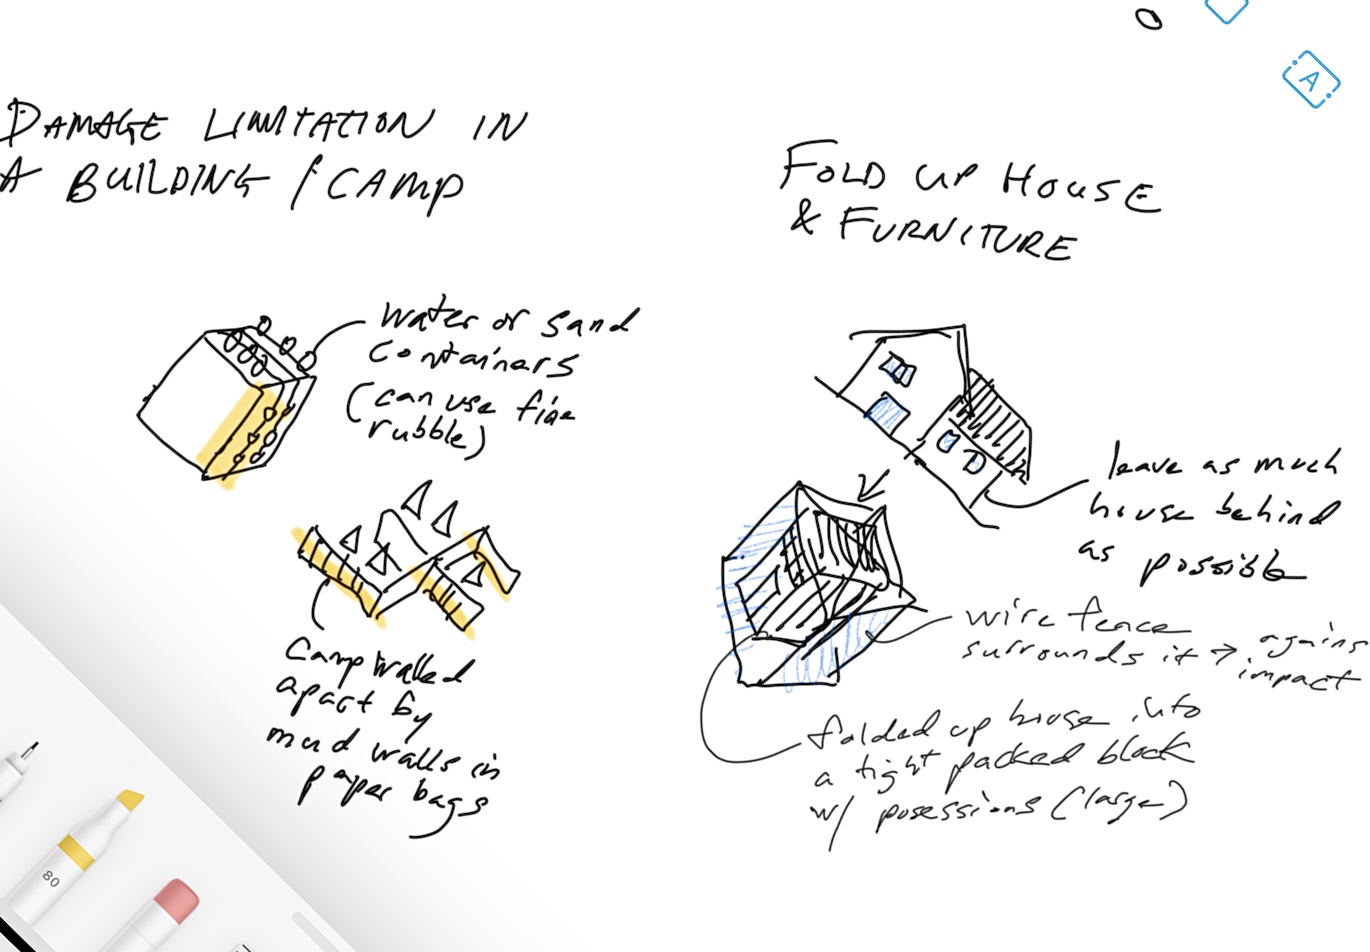 DAMAGE LIMITATION IN
A BUILDING / CAMP
water or sand
containers
(can use fine
rubble)
Camp walled
apart by
mud walls in
paper bags
FOLD UP HOUSE
& FURNITURE
leave as much
house behind
as possible
wire fence
surrounds it → agains
impact
folded up house into
a tight packed block
w/ posessions (large)
A
80